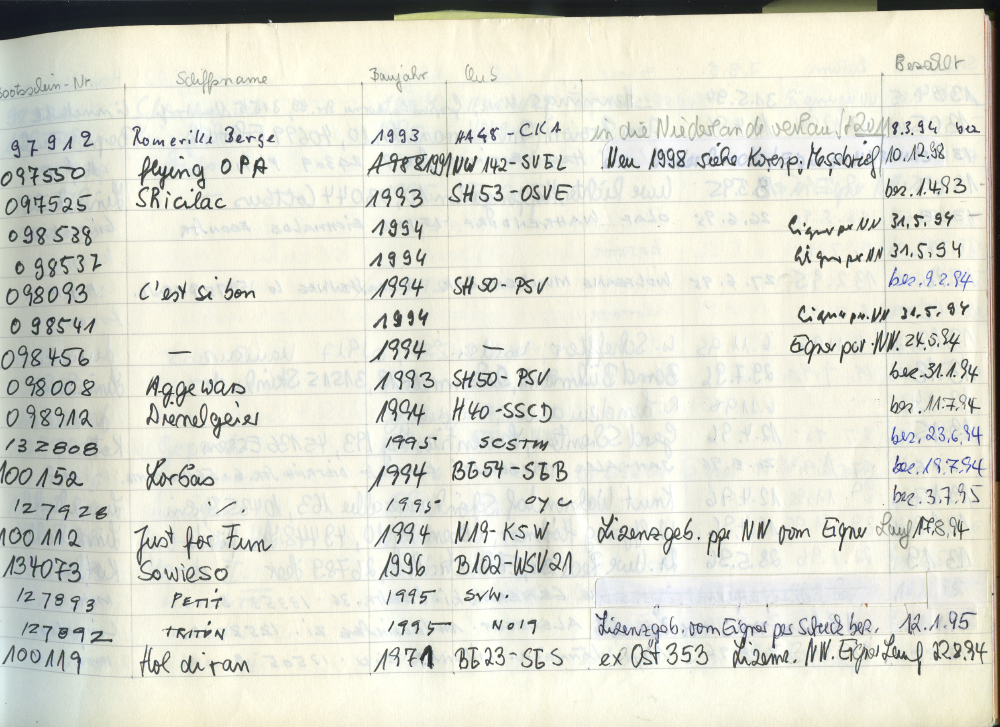 Bootsschein-Nr. Schiffsname Baujahr Club Bezahlt
97912 Romerike Berge 1993 HA48-CKA in die Niederlande verkauft 2011 8.3.94 bez
097550 flying OPA 1991 NW 142-SVEL Neu 1998 siehe Korresp. Messbrief 10.12.98
097525 Skicilac 1993 SH53-OSVE bez. 1.4.93
098538 1994 Eigner per NN 31.5.94
098537 1994 Eigner per NN 31.5.94
098093 C'est si bon 1994 SH50-PSV bez. 9.2.94
098541 1994 Eigner per NN 31.5.94
098456 — 1994 — Eigner per NN. 24.5.94
098008 Aggewars 1993 SH50-PSV bez. 31.1.94
098912 1994 H40-SSCD bez. 11.7.94
132808 1995 SCSTM bez. 23.6.94
100152 Lorbas 1994 BE54-SEB bez. 19.7.94
127928 1995 OYC bez. 3.7.95
100112 Just for Fun 1994 N19-KSW Lizenzgeb. per NN vom Eigner Lauf 17.8.94
134073 Sowieso 1996 B102-WSV21
127893 PETIT 1995 SVW.
127892 TRITON 1995 NO19 Lizenzgeb. vom Eigner per Scheck bez. 12.1.95
100119 Hol di ran 1971 BE23-SES ex Ost 353 Lizenz. NN. Eigner Lauf 22.8.94